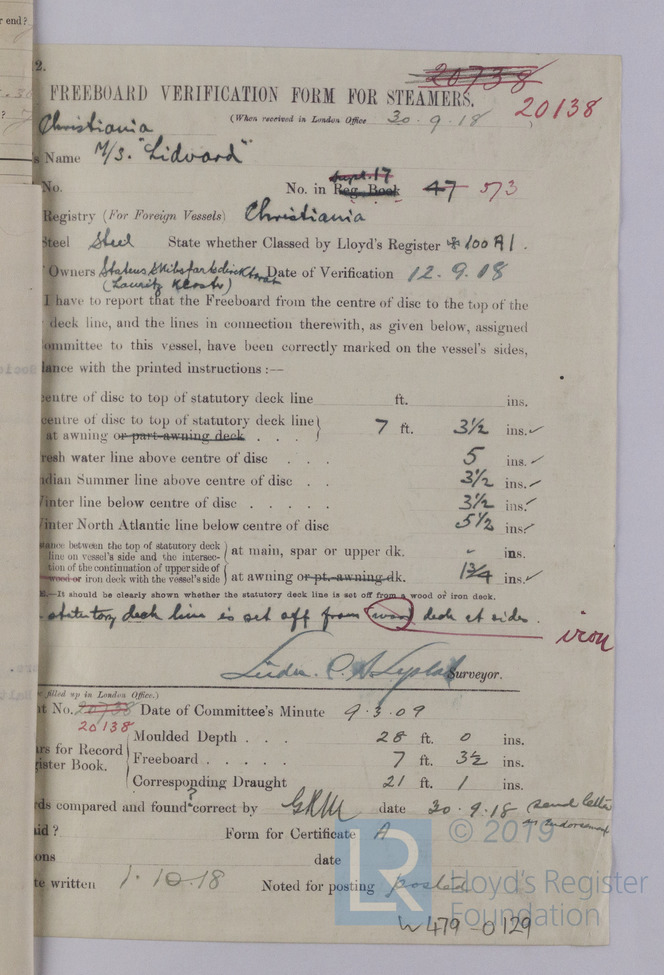 r end?
2.
20738
FREEBOARD VERIFICATION FORM FOR STEAMERS.
20138
(When received in London Office 30.9.18
Christiania
s Name M/S. "Lidvard"
No. No. in Reg. Book Sept. 17 47 573
Registry (For Foreign Vessels) Christiania
Steel Steel State whether Classed by Lloyd's Register 100 A1.
Owners Statens Skibsfartsdirektorat Date of Verification 12.9.18
(Lauritz Kloster)
I have to report that the Freeboard from the centre of disc to the top of the
deck line, and the lines in connection therewith, as given below, assigned
ommittee to this vessel, have been correctly marked on the vessel's sides,
dance with the printed instructions :—
centre of disc to top of statutory deck line ft. ins.
centre of disc to top of statutory deck line
at awning or part-awning deck . . . 7 ft. 3½ ins. ✓
resh water line above centre of disc . . . 5 ins. ✓
ndian Summer line above centre of disc . . 3½ ins. ✓
Winter line below centre of disc . . . . . 3½ ins. ✓
Winter North Atlantic line below centre of disc 5½ ins. ✓
tance between the top of statutory deck
line on vessel's side and the intersec-
tion of the continuation of upper side of
wood or iron deck with the vessel's side
at main, spar or upper dk. - ins.
at awning or pt.-awning dk. 1¾ ins. ✓
E.—It should be clearly shown whether the statutory deck line is set off from a wood or iron deck.
statutory deck line is set off from wood deck at sides.
iron
Surveyor.
filled up in London Office.)
t No. 20738 Date of Committee's Minute 9.3.09
20138
rs for Record
gister Book.
Moulded Depth . . . 28 ft. 0 ins.
Freeboard . . . . . 7 ft. 3½ ins.
Corresponding Draught 21 ft. 1 ins.
rds compared and found ? correct by GRM date 30.9.18 (send letter
an endorsement
aid ? Form for Certificate A
ons date
te written 1.10.18 Noted for posting posted
LR © 2019
Lloyd's Register
Foundation
W479-0129